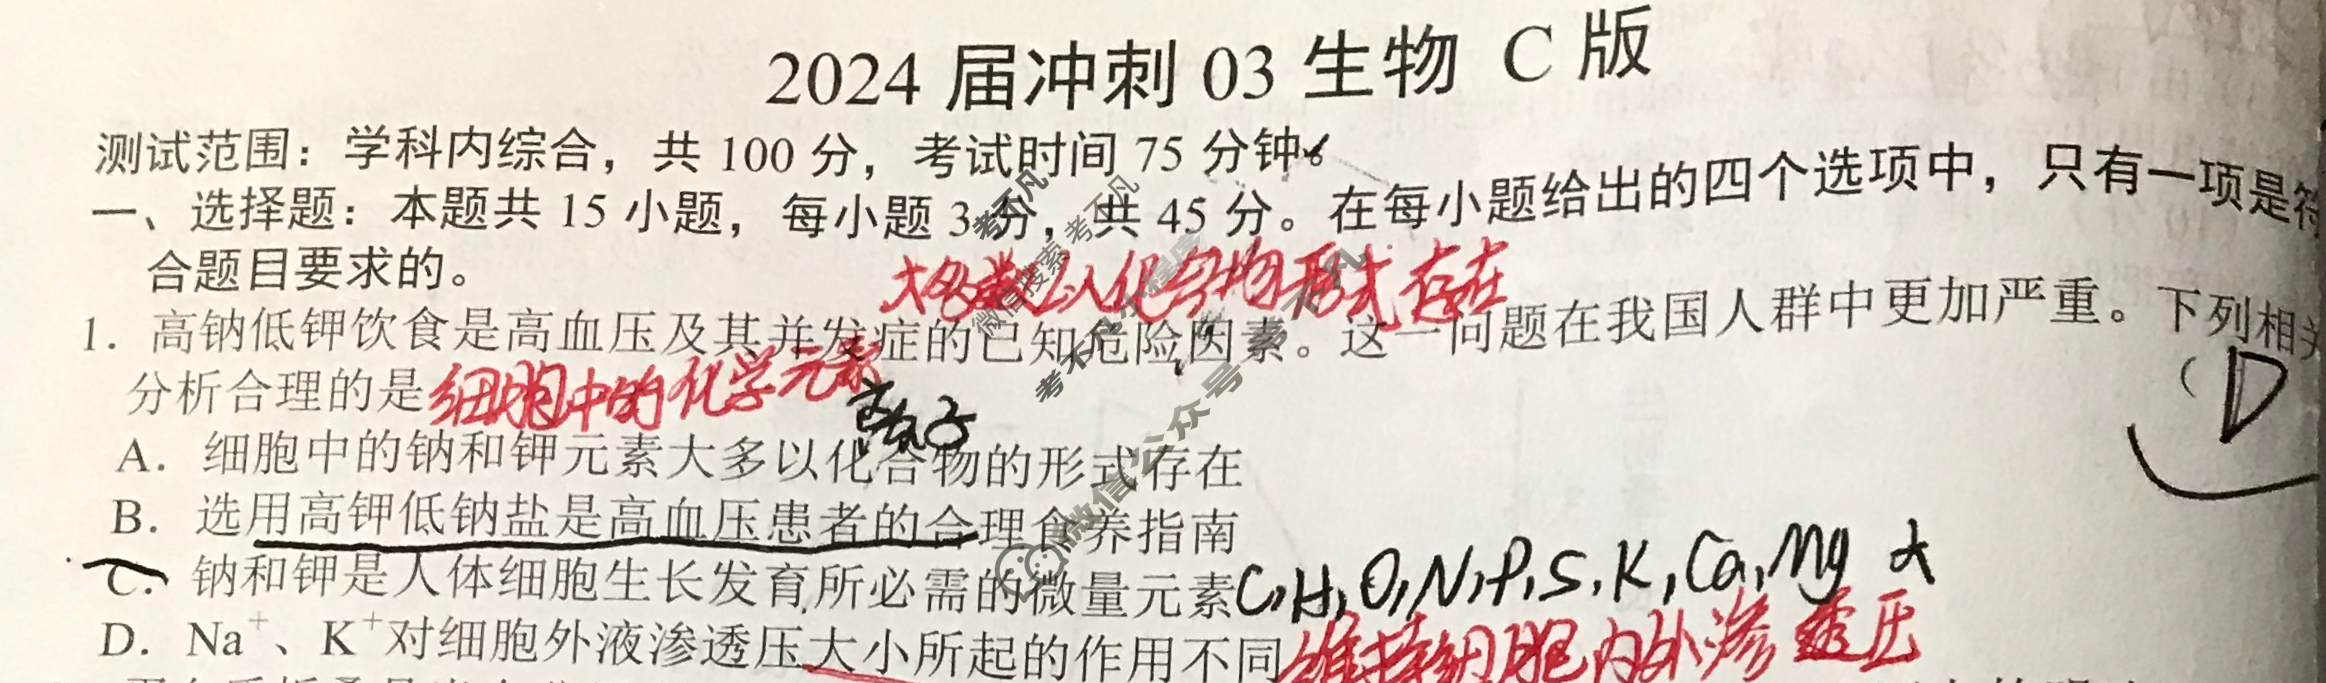 2024 届冲刺 03 生物 C 版
测试范围：学科内综合，共 100 分，考试时间 75 分钟。
一、选择题：本题共 15 小题，每小题 3 分，共 45 分。在每小题给出的四个选项中，只有一项是符
合题目要求的。
大多数以化合物形式存在
1. 高钠低钾饮食是高血压及其并发症的已知危险因素。这一问题在我国人群中更加严重。下列相关
分析合理的是
细胞中的化学元素
( D
离子
A. 细胞中的钠和钾元素大多以化合物的形式存在
B. 选用高钾低钠盐是高血压患者的合理食养指南
C. 钠和钾是人体细胞生长发育所必需的微量元素
C,H,O,N,P,S,K,Ca,Mg 大
D. Na⁺、K⁺对细胞外液渗透压大小所起的作用不同
维持细胞内外渗透压
考不凡
微信搜索 考不凡
考不凡 小程序
微信公众号 不凡